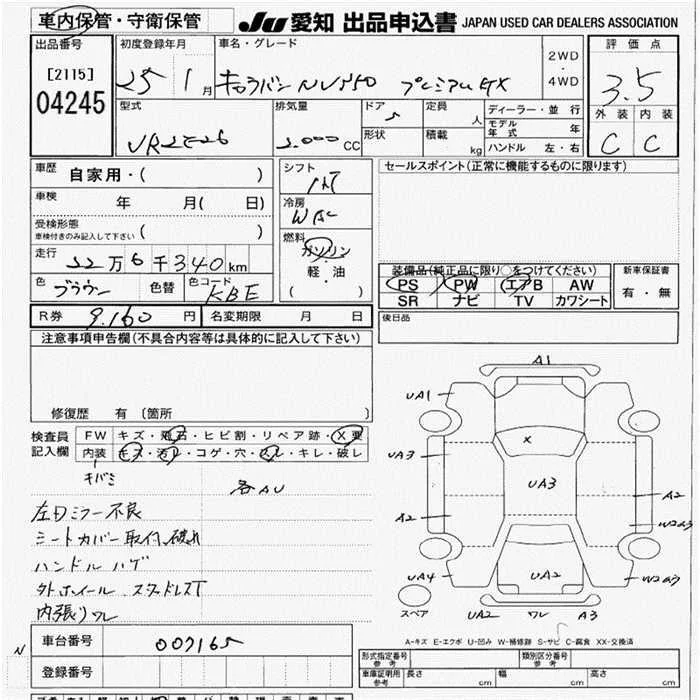 車内保管・守衛保管
JU 愛知 出品申込書 JAPAN USED CAR DEALERS ASSOCIATION
出品番号 初度登録年月 車名・グレード 評価点
[2115] 25 1月 キャラバン NV350 プレミアムGX 2WD・4WD 3.5
04245
型式 排気量 ドア 定員 ディーラー・並行 外装 内装
VR2E26 2.000 CC 5 人 モデル年式 年 C C
形状 積載 kg ハンドル 左・右
車歴 自家用・( ) シフト セールスポイント(正常に機能するものに限ります)
車検 年 月( 日) 冷房
WAC
受検形態 ( ) 燃料
車検付きのみ記入して下さい ガソリン
走行 22万6千340km ・軽・油
( )
装備品(純正品に限り○をつけてください) 新車保証書
色 ブラウン 色替 色コード KBE
PS PW エアB AW 有・無
SR ナビ TV カワシート
R券 9.160円 名変期限 月 日 後日品
注意事項申告欄(不具合内容等は具体的に記入して下さい)
修復歴 有 〔箇所 〕
検査員記入欄 FW キズ・飛石・ヒビ割・リペア跡・X要
内装 キズ・汚レ・コゲ・穴・スレ・キレ・破レ
キバミ
各AU
左ドミラー不良
シートカバー取付、破れ
ハンドル ハゲ
外ホイール スタッドレスT
内張りワレ
A1
UA1
X
UA3
UA3
A2
A2
W2a3
UA4
UA2
W2a3
スペア
UA2 ワレ A3
A-キズ E-エクボ U-凹み W-補修跡 S-サビ C-腐食 XX-交換済
N
車台番号 007165
登録番号
形式指定番号 参考 類別区分番号 参考
車庫証明用 参考 長さ cm 幅 cm 高さ cm